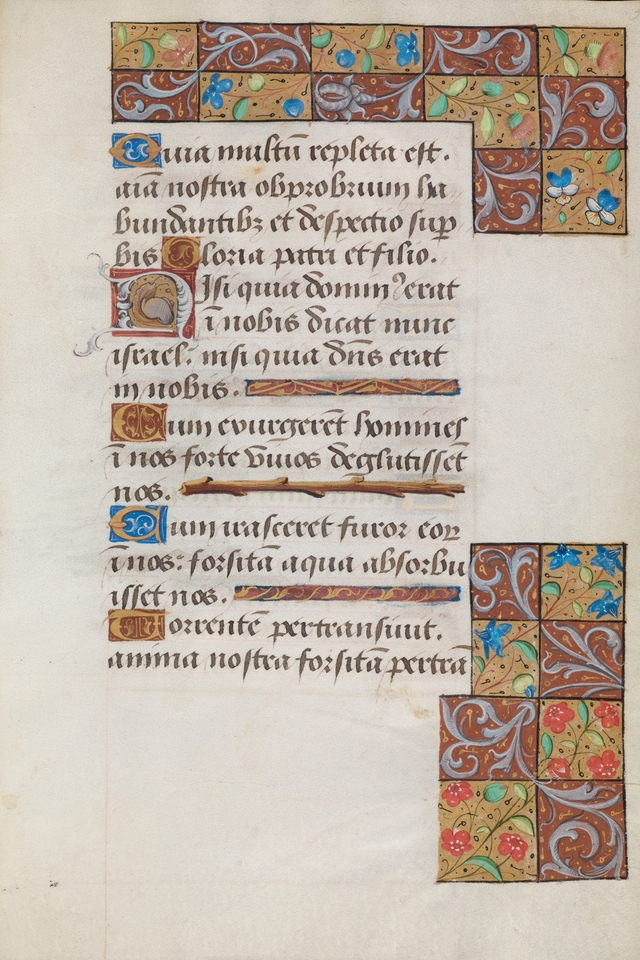 Quia multū repleta est.
aīa nostra obprobrium ha
bundantibꝫ et despectio sup̄
bis Gloria patri et filio.
Nisi quia dominꝰ erat
ī nobis dicat nunc
israel: nisi quia dn̄s erat
in nobis.
Cum exurgerēt homines
ī nos forte viuos deglutissēt
nos.
Cum irasceret furor eoꝝ
ī nos: forsitā aqua absorbu
isset nos.
Torrentē pertransiuit.
anima nostra forsitā pertrā